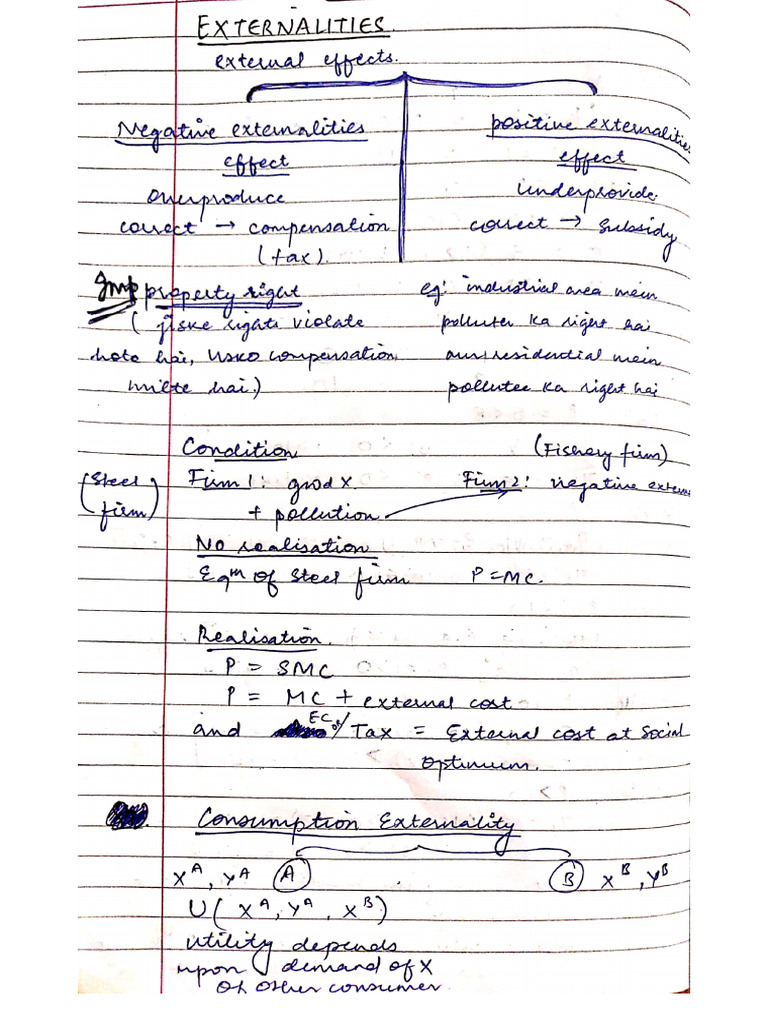 EXTERNALITIES.
external effects.
Negative externalities
effect
overproduce
correct → compensation
(tax).
positive externalities
effect
underprovide.
correct → subsidy
Imp property right
( jiske rights violate
hote hai, usko compensation
milte hai.)
eg: industrial area mein
polluter ka right hai
aur residential mein
pollutee ka right hai
Condition (Fishery firm)
(Steel firm) Firm 1: good x. Firm 2: negative extern
+ pollution
No realisation
Eqm of steel firm P=MC.
Realisation.
P = SMC
P = MC + external cost
and EC or Tax = External cost at social
optimum.
Consumption Externality
X^A, Y^A (A) (B) X^B, Y^B
U( X^A, Y^A, X^B)
utility depends
upon demand of X
of other consumer.